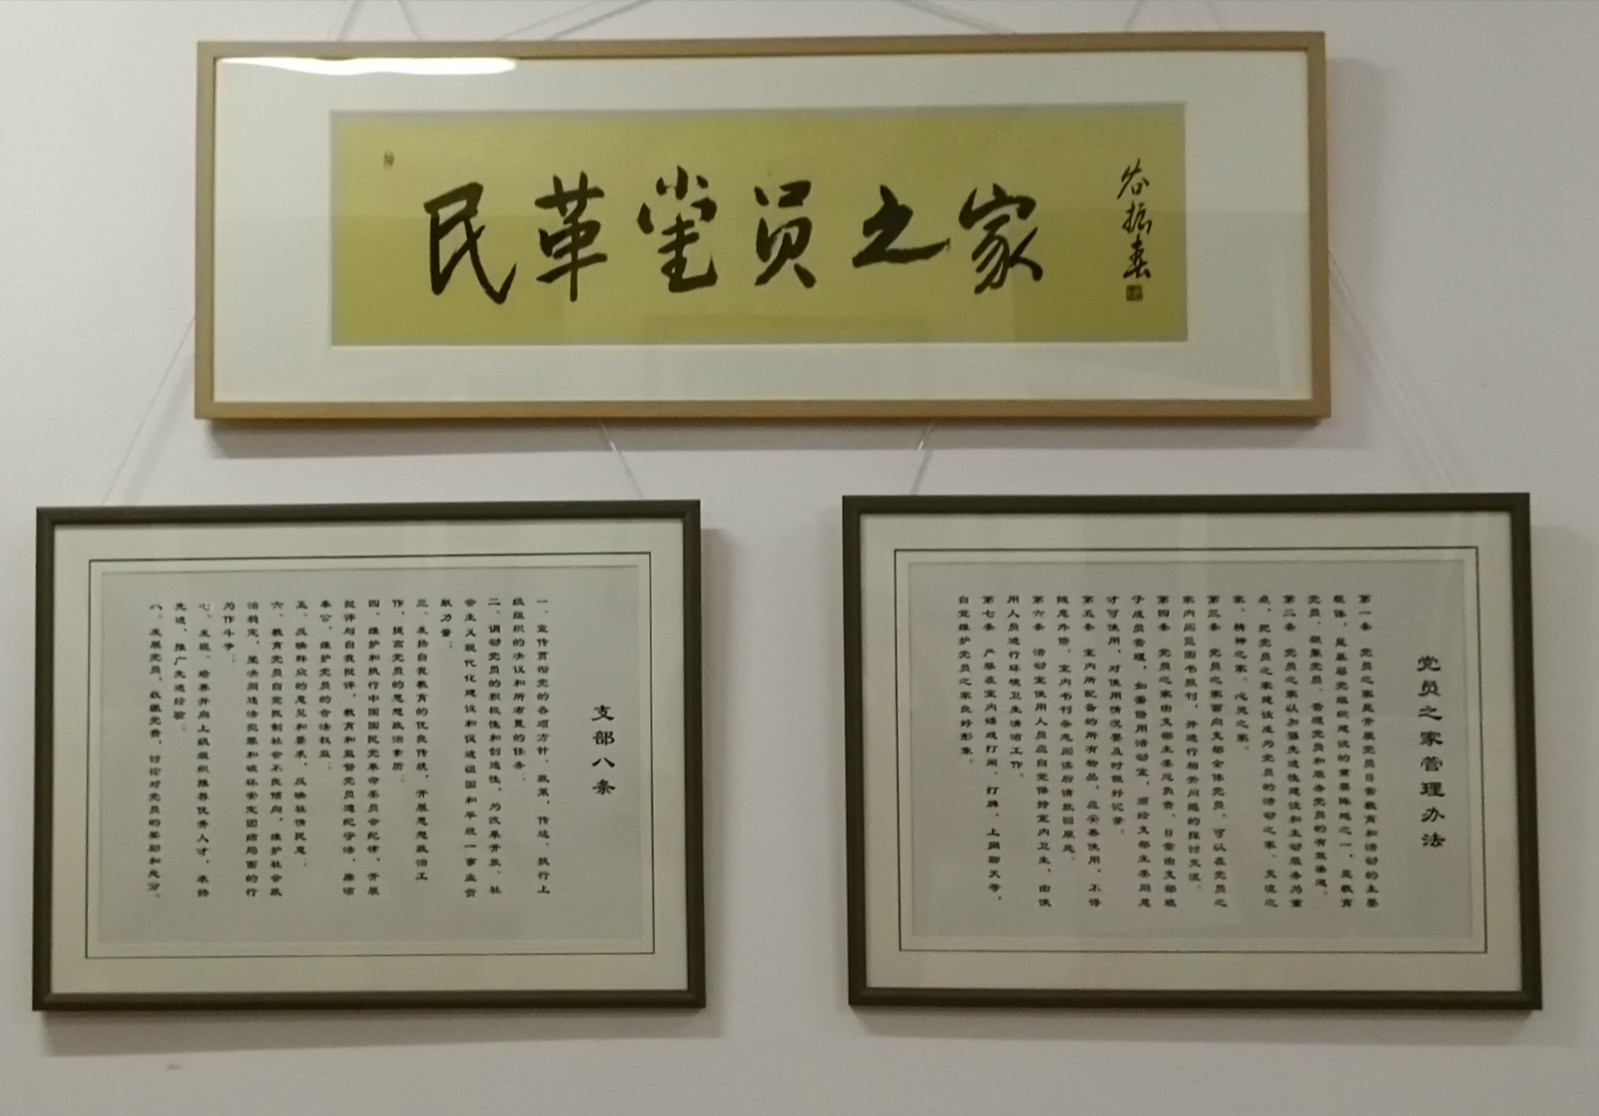 民革党员之家
谷振春
党员之家管理办法
第一条 党员之家是开展党员日常教育和活动的主要
载体，是基层党组织建设的重要阵地之一，是教育
党员、凝聚党员、管理党员和服务党员的有效渠道。
第二条 党员之家以加强先进性建设和主动服务为重
点，把党员之家建设成为党员的活动之家、交流之
家、精神之家、心灵之家。
第三条 党员之家面向支部全体党员，可以在党员之
家内阅览图书报刊，并进行相关问题的探讨交流。
第四条 党员之家由支部主委总负责，日常由支部班
子成员管理，如需借用活动室，须经支部主委同意
才可使用，对使用情况要及时做好记录。
第五条 室内所配备的所有物品，应妥善使用，不得
随意外借，室内书刊杂志阅读后请放回原处。
第六条 活动室使用人员应自觉保持室内卫生，由使
用人员进行环境卫生清洁工作。
第七条 严禁在室内嬉戏打闹、打牌、上网聊天等，
自觉维护党员之家良好形象。
支部八条
一、宣传贯彻党的各项方针、政策，传达、执行上
级组织的决议和所布置的任务；
二、调动党员的积极性和创造性，为改革开放、社
会主义现代化建设和促进祖国和平统一事业贡
献力量；
三、发扬自我教育的优良传统，开展思想政治工
作，提高党员的思想政治素质；
四、维护和执行中国国民党革命委员会纪律，开展
批评与自我批评，教育和监督党员遵纪守法，廉洁
奉公，维护党员的合法权益；
五、反映群众的意见和要求，反映社情民意；
六、教育党员自觉抵制社会不良倾向，维护社会政
治稳定，坚决同违法犯罪和破坏安定团结局面的行
为作斗争；
七、发现、培养并向上级组织推荐优秀人才，表扬
先进，推广先进经验；
八、发展党员，收缴党费，讨论对党员的奖励和处分。